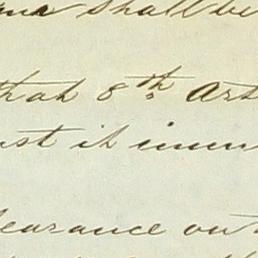 shall be
that 8th Art
it imm
earance on